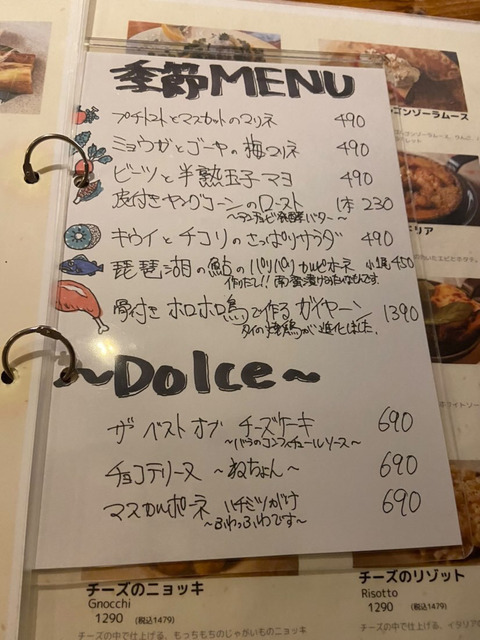 季節MENU
プチトマトとマスカットのマリネ 490
ミョウガとゴーヤの梅マリネ 490
ビーツと半熟玉子マヨ 490
皮付きヤングコーンのロースト 1本 230
キウイとチコリのさっぱりサラダ 490
琵琶湖の鮎のパリパリカルピオーネ 小1尾 450
骨付きホロホロ鳥で作るガイヤーン 1390
タイの焼鶏が進化しました。
~Dolce~
ザ ベスト オブ チーズケーキ 690
~バラのコンフィチュールソース~
チョコテリーヌ ~ねちょん~ 690
マスカルポーネ ハチミツがけ 690
~ふわっふわです~
ゴンゾーラムース
チーズのニョッキ
Gnocchi
1290 (税込1479)
チーズの中で仕上げる、もっちもちのじゃがいものニョッキ
チーズのリゾット
Risotto
1290 (税込1479)
チーズの中で仕上げる、イタリアの